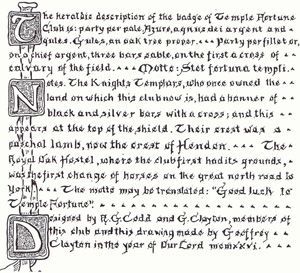 The heraldic description of the badge of Temple Fortune
Club is: party per pale Azure, agnus dei argent and
gules. Gules, an oak tree proper. Party per fillet or,
on a chief argent, three bars sable, on the first a cross of
calvary of the field. Motto: Stet fortuna templi.
Notes. The Knights Templars, who once owned the
land on which this club now is, had a banner of
black and silver bars with a cross; and this
appears at the top of the shield. Their crest was a
paschal lamb, now the crest of Hendon. The
Royal Oak Hostel, where the club first had its grounds,
was the first change of horses on the great north road to
York. The motto may be translated: "Good luck to
Temple Fortune".
Designed by R.G. Codd and G. Clayton, members of
this club and this drawing made by Geoffrey
Clayton in the year of Our Lord mcmxxvi.